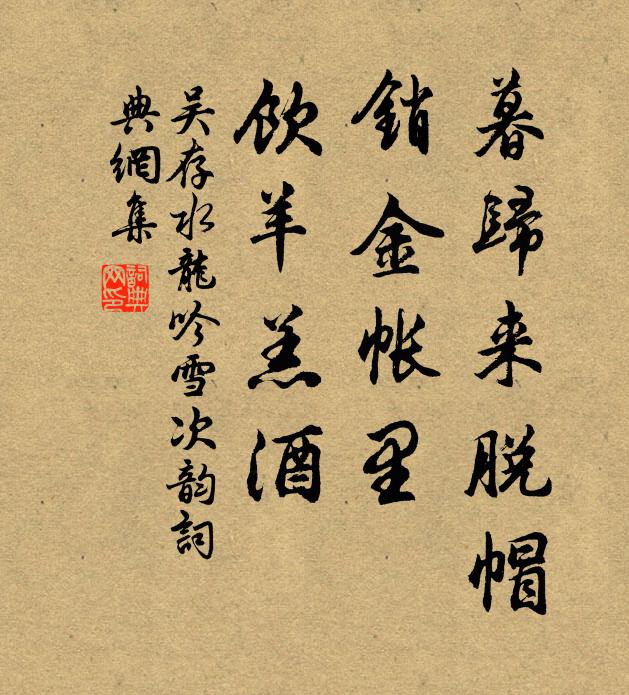 暮歸来脱帽
銷金帐里
飲羊羔酒
吴存水龍吟雪次韵詞
典網集
詞典網印